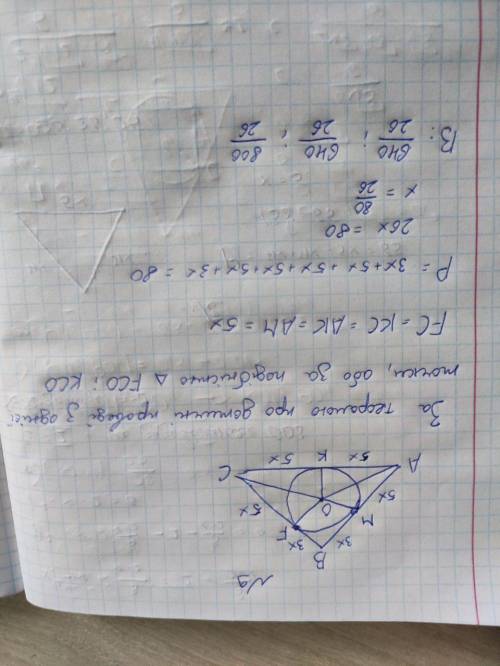 №9
B
3x 3x
M F
5x O 5x
A 5x K 5x C
За теоремою про дотичні проведені з однієї
точки, або за подібністю △ FCO і KCO
FC = KC = AK = AM = 5x
P = 3x+5x+5x+5x+5x+3x = 80
26x = 80
x = 80/26
В: 640/26 ; 640/26 ; 800/26